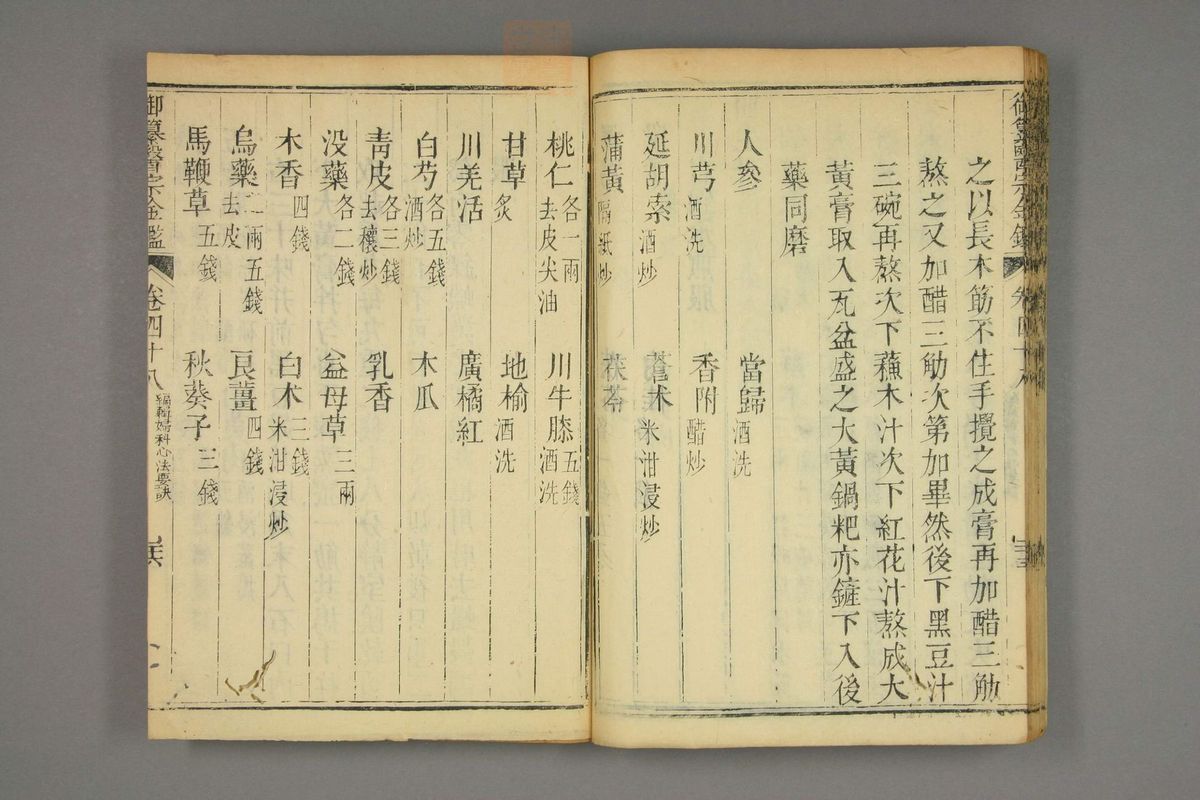 之以長木筋不住手攪之成膏再加醋三觔
熬之又加醋三觔次第加畢然後下黑豆汁
三碗再熬次下蘇木汁次下紅花汁熬成大
黃膏取入瓦盆盛之大黃鍋粑亦鏟下入後
藥同磨
人參 當歸酒洗
川芎酒洗 香附醋炒
延胡索酒炒 蒼朮米泔浸炒
蒲黃隔紙炒 茯苓
桃仁各一兩去皮尖油 川牛膝五錢酒洗
甘草炙 地榆酒洗
川羌活 廣橘紅
白芍各五錢酒炒 木瓜
青皮各三錢去穰炒 乳香
没藥各二錢 益母草三兩
木香四錢 白朮三錢米泔浸炒
烏藥二兩五錢去皮 良薑四錢
馬鞭草五錢 秋葵子三錢
御纂醫宗金鑑 卷四十八 編輯婦科心法要訣